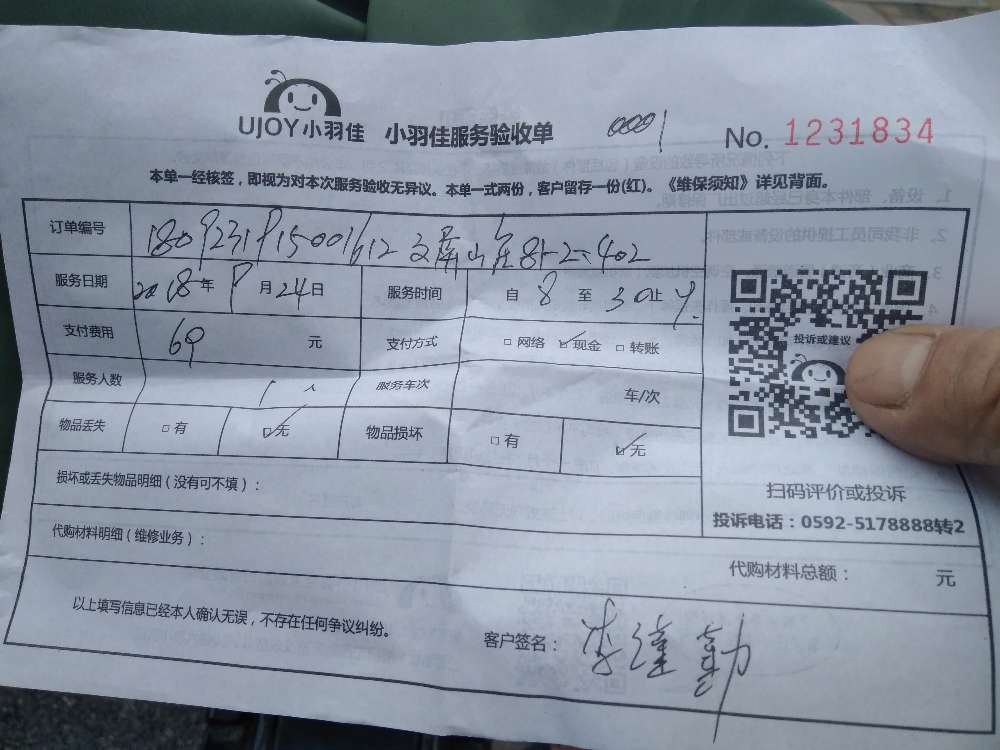 UJOY小羽佳 小羽佳服务验收单 0001 No. 1231834
本单一经核签，即视为对本次服务验收无异议。本单一式两份，客户留存一份(红)。《维保须知》详见背面。
订单编号
服务日期 2018年 月24日 服务时间 自 8 至 30止
支付费用 69 元 支付方式 □网络 ☑现金 □转账
服务人数 1人 服务车次 车/次
物品丢失 □有 ☑无 物品损坏 □有 ☑无
投诉或建议
扫码评价或投诉
投诉电话：0592-5178888转2
损坏或丢失物品明细（没有可不填）：
代购材料明细（维修业务）：
代购材料总额： 元
以上填写信息已经本人确认无误，不存在任何争议纠纷。
客户签名：